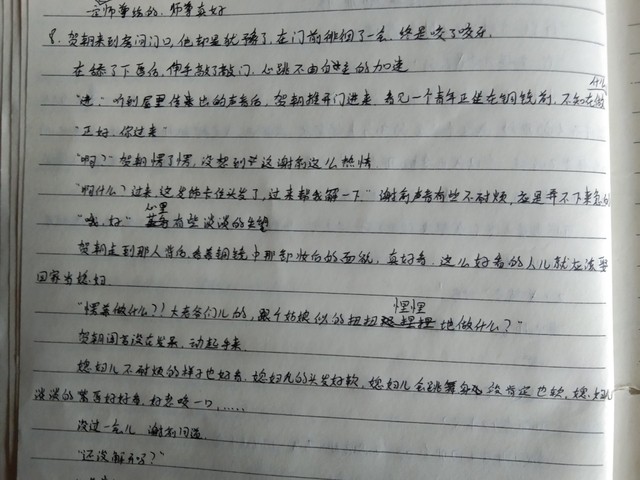 老师单给的,师尊真好
8. 贺朝来到房间门口,他却是犹豫了,在门前徘徊了一会,终是咬了咬牙.
在舔了下唇后,伸手敲了敲门,心跳不由自主的加速
"进." 听到屋里传来出的声音后,贺朝推开门进来,看见一个青年正坐在铜镜前,不知在做什么
"正好,你过来"
"啊?" 贺朝愣了愣,没想到 谢俞这么热情
"啊什么?过来,这发饰卡住头发了,过来帮我解一下" 谢俞声音有些不耐烦,应是弄不下来急的
"哦,好" 心里有些淡淡的失望
贺朝走到那人背后,看着铜镜中那卸妆后的面貌,真好看,这么好看的人儿就应该娶
回家当媳妇
"愣着做什么?!大老爷们儿的,跟个姑娘似的扭扭捏捏地做什么?"
贺朝闻言没在发呆,动起手来.
媳妇儿不耐烦的样子也好看,媳妇儿的头发好软,媳妇儿会跳舞身段肯定也软,媳妇儿
淡淡的紫唇好好看,好想咬一口,……
没过一会儿 谢俞问道
"还没解开吗?"